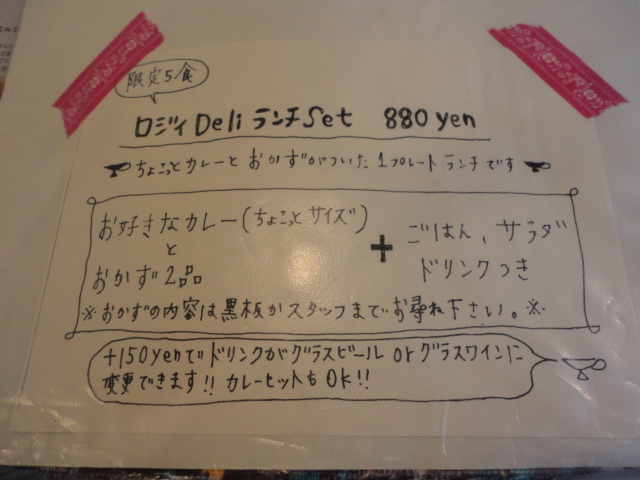 限定5食
ロジィ Deli ランチ Set 880 yen
ちょこっとカレーと おかずがついた 1プレート ランチです
お好きなカレー(ちょこっとサイズ)
と
おかず 2品
+
ごはん、サラダ
ドリンクつき
※おかずの内容は黒板かスタッフまでお尋ね下さい。※
+150yenでドリンクがグラスビール or グラスワインに
変更できます!! カレーセットもOK!!